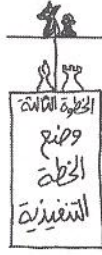 الخطوة الثالثة
وضع
الخطة
التنفيذية